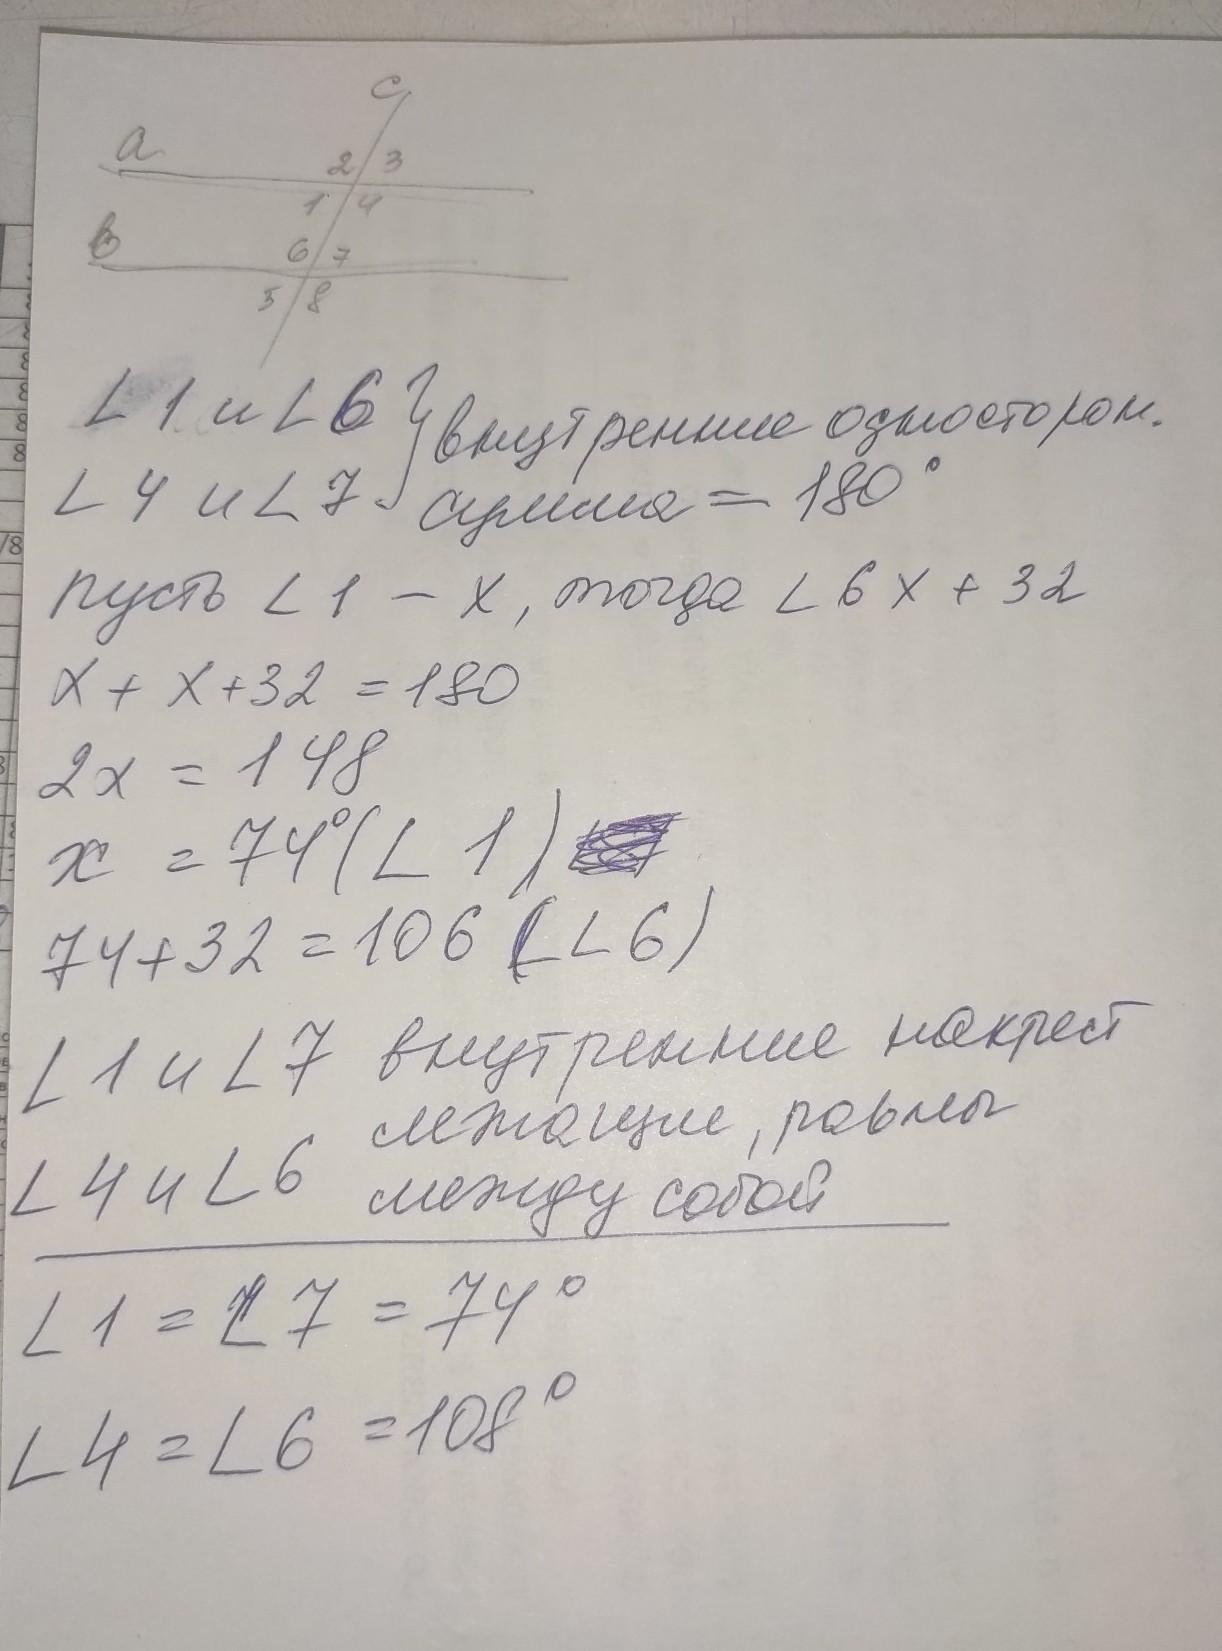 c
a
2 3
1 4
в
6 7
5 8
∠1 и ∠6 } внутренние односторон.
∠4 и ∠7 сумма = 180°
пусть ∠1 – x, тогда ∠6 x + 32
x + x + 32 = 180
2x = 148
x = 74° (∠1)
74 + 32 = 106 (∠6)
∠1 и ∠7 внутренние накрест
лежащие, равны
∠4 и ∠6 между собой
∠1 = ∠7 = 74°
∠4 = ∠6 = 108°